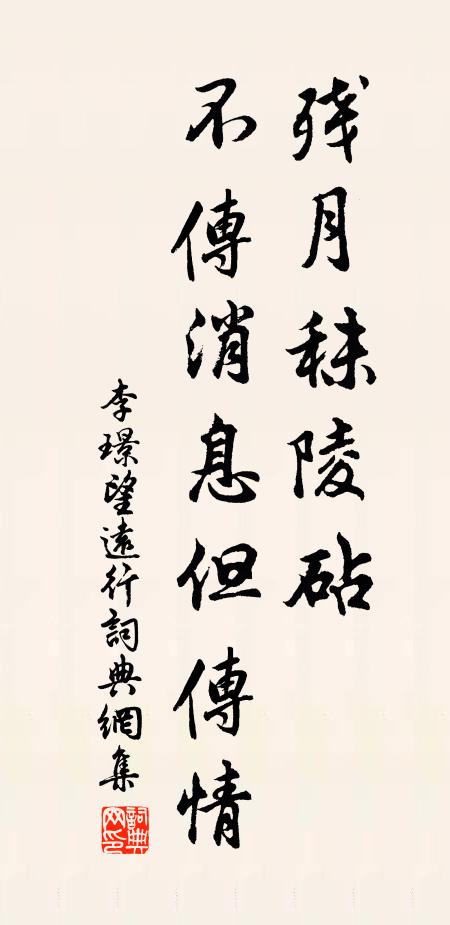 残月秣陵砧
不傳消息但傳情
李璟望遠行詞典網集
詞典網印